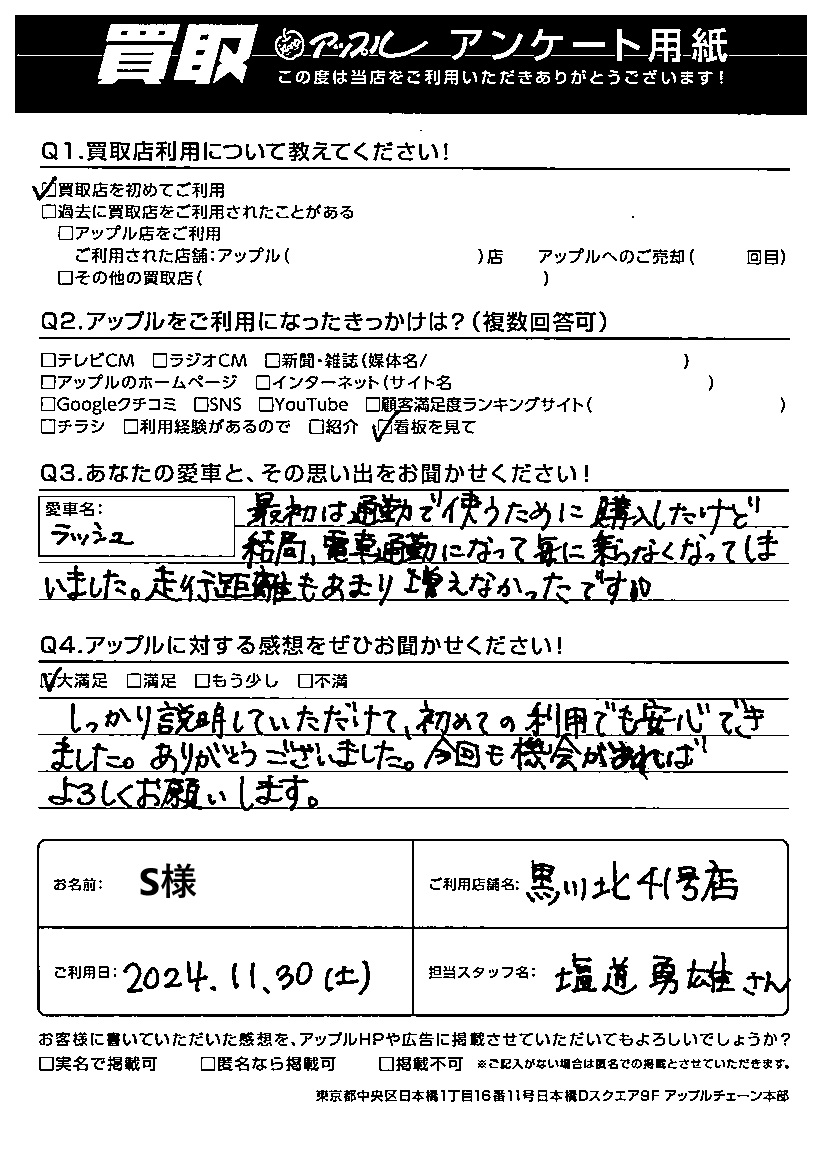 買取 アップル アンケート用紙
この度は当店をご利用いただきありがとうございます!
Q1.買取店利用について教えてください!
☑買取店を初めてご利用
□過去に買取店をご利用されたことがある
□アップル店をご利用
ご利用された店舗:アップル( )店 アップルへのご売却( 回目)
□その他の買取店( )
Q2.アップルをご利用になったきっかけは?(複数回答可)
□テレビCM □ラジオCM □新聞・雑誌(媒体名/ )
□アップルのホームページ □インターネット(サイト名 )
□Googleクチコミ □SNS □YouTube □顧客満足度ランキングサイト( )
□チラシ □利用経験があるので □紹介 ☑看板を見て
Q3.あなたの愛車と、その思い出をお聞かせください!
愛車名:
ラッシュ
最初は通勤で使うために購入したけど
結局、電車通勤になって毎に乗らなくなってしま
いました。走行距離もあまり増えなかったです
Q4.アップルに対する感想をぜひお聞かせください!
☑大満足 □満足 □もう少し □不満
しっかり説明していただけて、初めての利用でも安心でき
ました。ありがとうございました。今回も機会があれば
よろしくお願いします。
お名前: S様 ご利用店舗名: 黒川北41号店
ご利用日: 2024.11.30(土) 担当スタッフ名: 塩道勇雄さん
お客様に書いていただいた感想を、アップルHPや広告に掲載させていただいてもよろしいでしょうか?
□実名で掲載可 □匿名なら掲載可 □掲載不可 ※ご記入がない場合は匿名での掲載とさせていただきます。
東京都中央区日本橋1丁目16番11号日本橋Dスクエア9F アップルチェーン本部